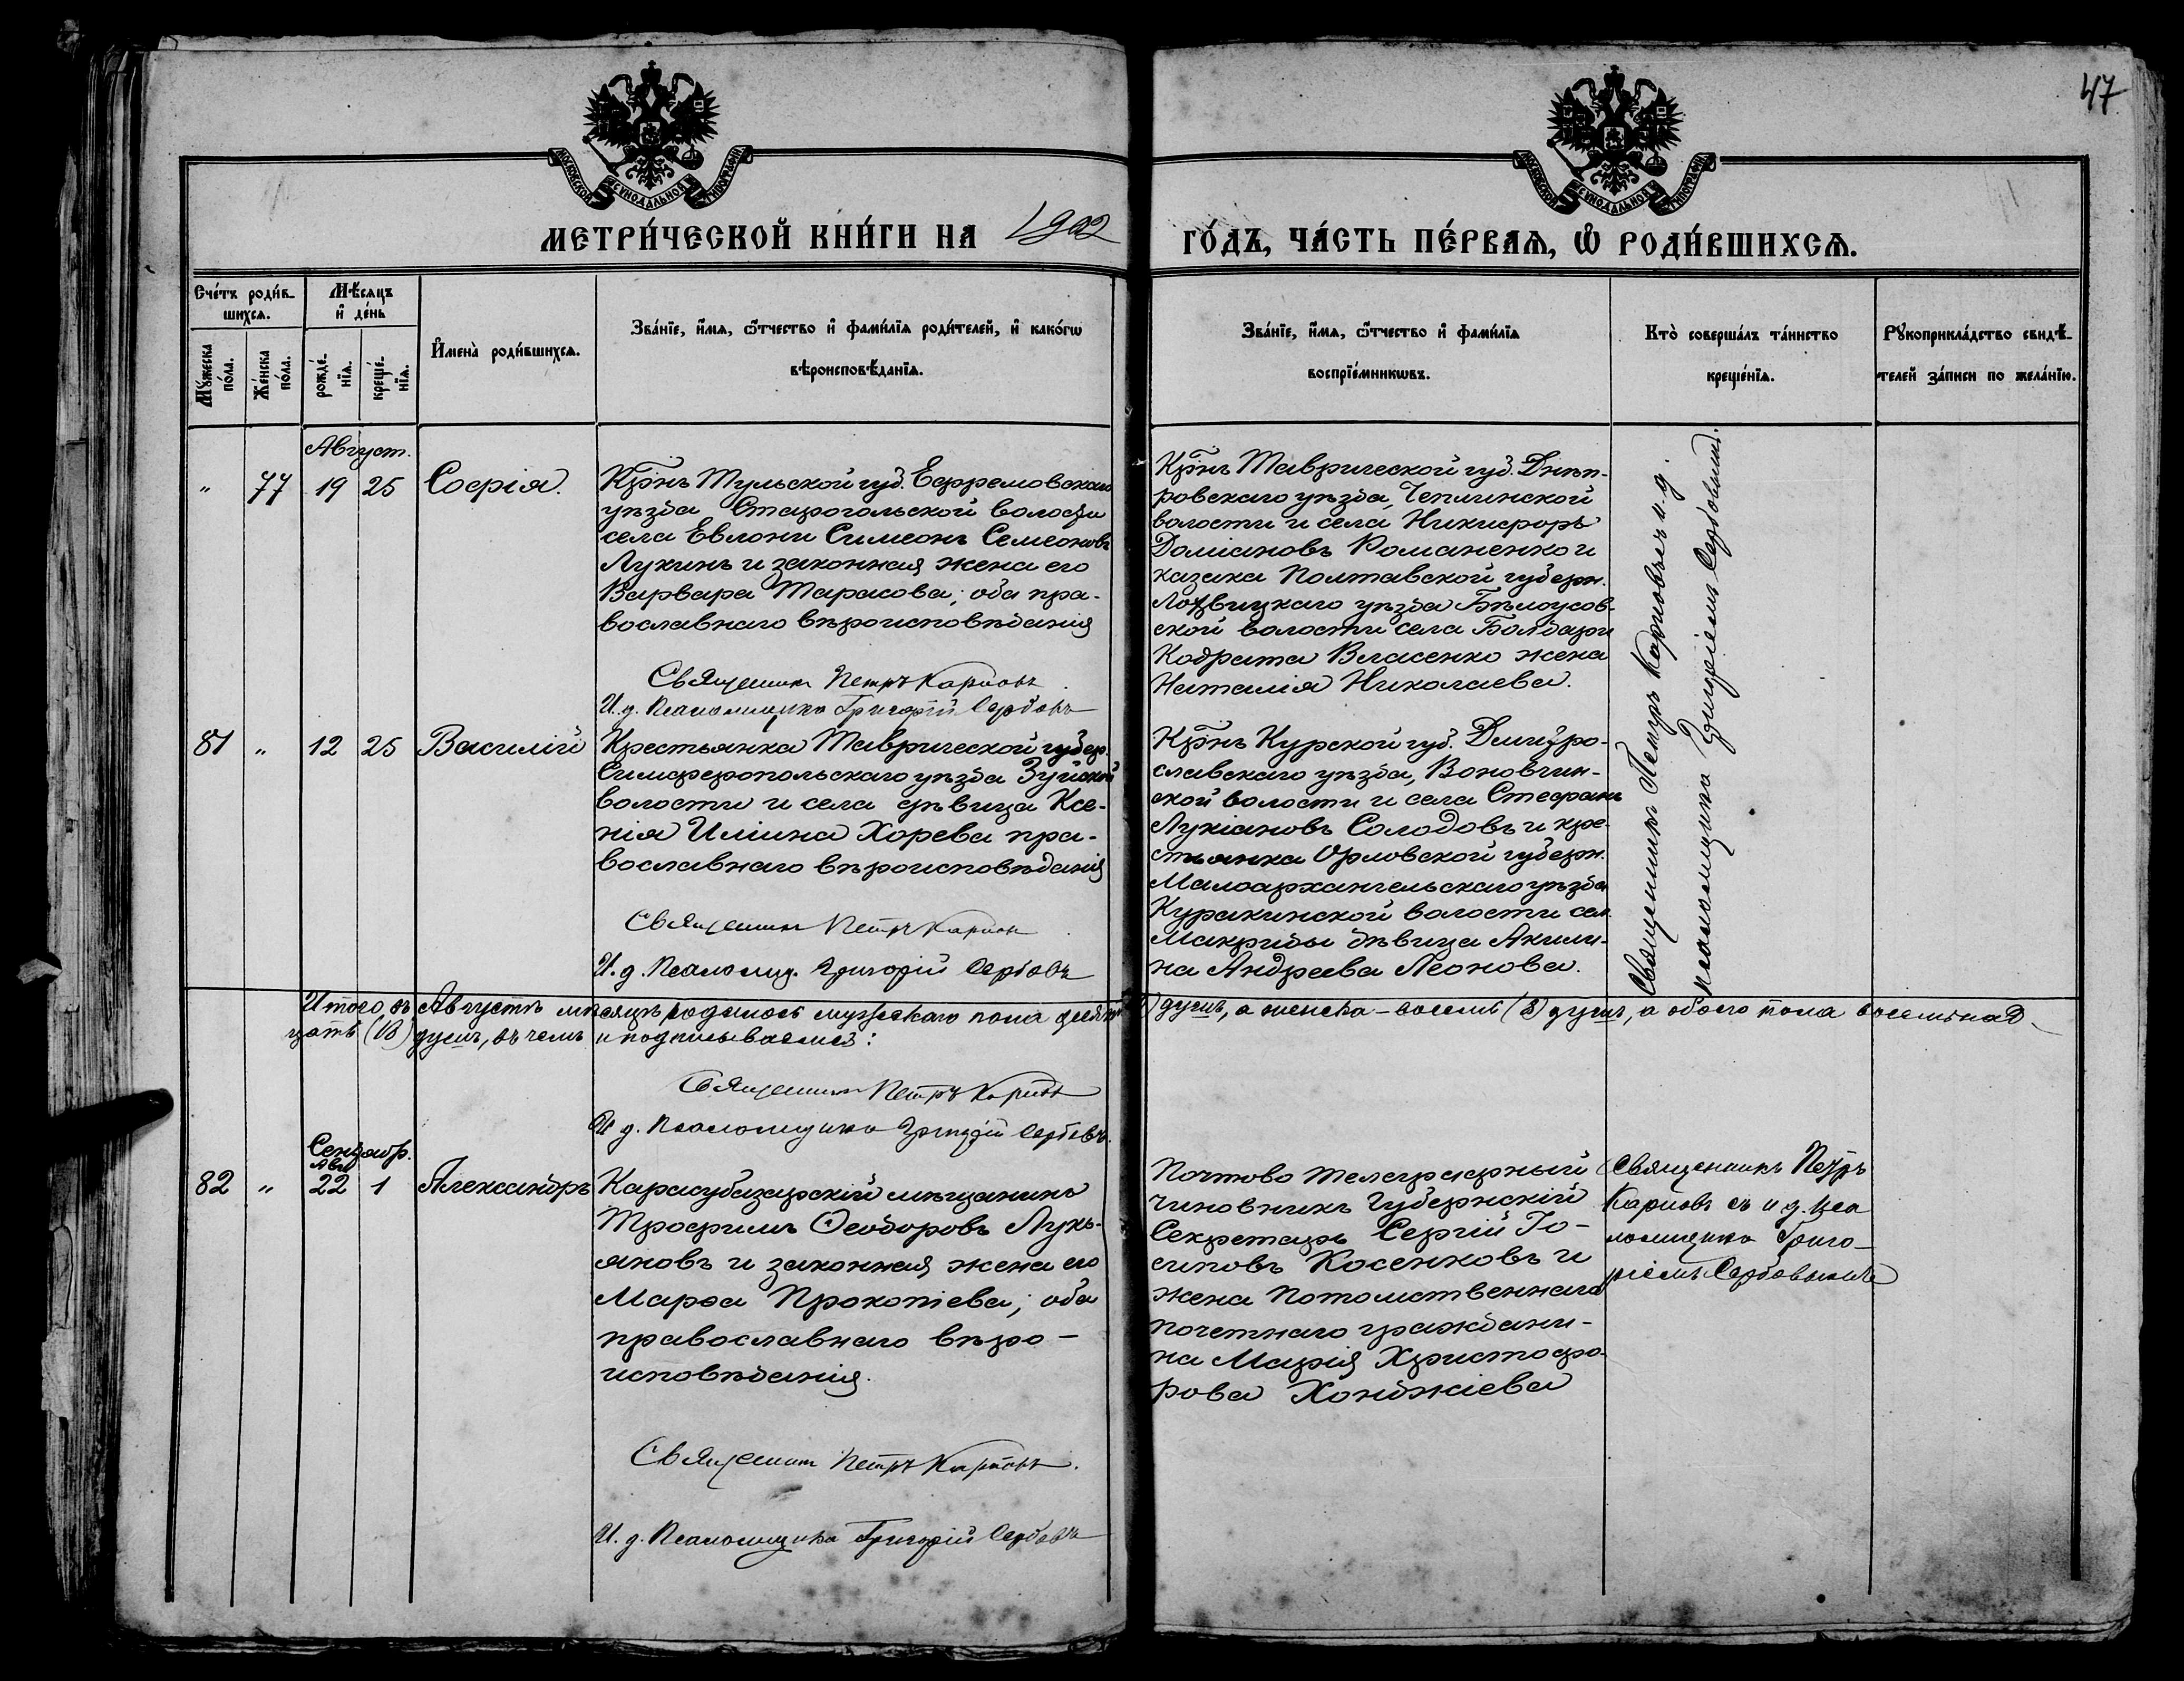 47
МОСКОВСКОЙ СѴНОДАЛЬНОЙ ТИПОГРАФІИ
МОСКОВСКОЙ СѴНОДАЛЬНОЙ ТИПОГРАФІИ
МЕТРИ́ЧЕСКОЙ КНИ́ГИ НА 1902 ГО́ДЪ, ЧА́СТЬ ПЕ́РВАЯ, Ѡ РОДИ́ВШИХСЯ.
Сче́тъ роди́в-
шихся.
Мѣ́сяцъ
и҆ де́нь
Мꙋ́жеска
по́ла.
Же́нска
по́ла.
рожде́-
нїя.
креще́-
нїя.
И҆мена̀ роди́вшихся.
Зва́нїе, и҆́мя, ѻ҆́тчество и҆ фами́лїя роди́телей, и҆ како́гѡ
вѣроисповѣ́данїя.
Зва́нїе, и҆́мя, ѻ҆́тчество и҆ фами́лїя
воспрїе́мникѡвъ.
Кто̀ соверша́лъ та́инство
креще́нїя.
Рꙋкоприкла́дство свидѣ́-
телей за́писи по жела́нїю.
Август.
" 77 19 25 Софія.
Крн҃ъ Тульской губ. Ефремовскаго
уѣзда Старогольской волости
села Евлони Симеонъ Семеоновъ
Лукинъ и законная жена его
Варвара Тарасова; оба пра-
вославнаго вѣроисповѣданія
Священникъ Петръ Карповъ
И. д. Псаломщика Григорій Сербовъ
Крн҃ъ Таврической губ. Днѣп-
ровскаго уѣзда, Чеплинской
волости и села Никифоръ
Доміановъ Романенко и
казака Полтавской губерн.
Лохвицкаго уѣзда Бѣлоусов-
ской волости села
Кодрата Власенко жена
Наталія Николаева.
Священникъ Петръ Карповъ съ и. д.
псаломщика Григоріемъ Сербовымъ.
81 " 12 25 Василій
Крестьянка Таврической губер.
Симферопольскаго уѣзда Зуйской
волости и села дѣвица Ксе-
нія Иліина Хорева пра-
вославнаго вѣроисповѣданія
Священникъ Петръ Карповъ
И. д. Псаломщ. Григорій Сербовъ
Крн҃ъ Курской губ. Дмитро-
славскаго уѣзда,
ской волости и села Стефанъ
Лукіановъ Солодовъ и кре-
стьянка Орловской губерн.
Малоархангельскаго уѣзда
Куракинской волости сел.
Макриды дѣвица Акили-
на Андреева Леонова.
Итого въ Августѣ мѣсяцѣ родилось мужескаго пола десять (10) душъ, а женска – восемь (8) душъ, а обоего пола восемнад-
цать (18) душъ, въ чемъ и подписываемся:
Священникъ Петръ Карповъ
И д. Псаломщика Григорій Сербовъ.
Сентябр.
Авг
82 " 22 1 Александръ
Карасубазарскій мѣщанинъ
Трофимъ Ѳеодоровъ Лукь-
яновъ и законная жена его
Марѳа Прокопіева; оба
православнаго вѣро-
исповѣданія.
Священникъ Петръ Карповъ.
И. д. Псаломщика Григорій Сербовъ
Почтово телеграфный
чиновникъ Губернскій
Секретарь Сергій Іо-
сиповъ Косенковъ и
жена потомственнаго
почетнаго граждани-
на Марія Христофо-
рова Хонджіева
Священникъ Петръ
Карповъ съ и д. пса
ломщика Григо-
ріемъ Сербовымъ